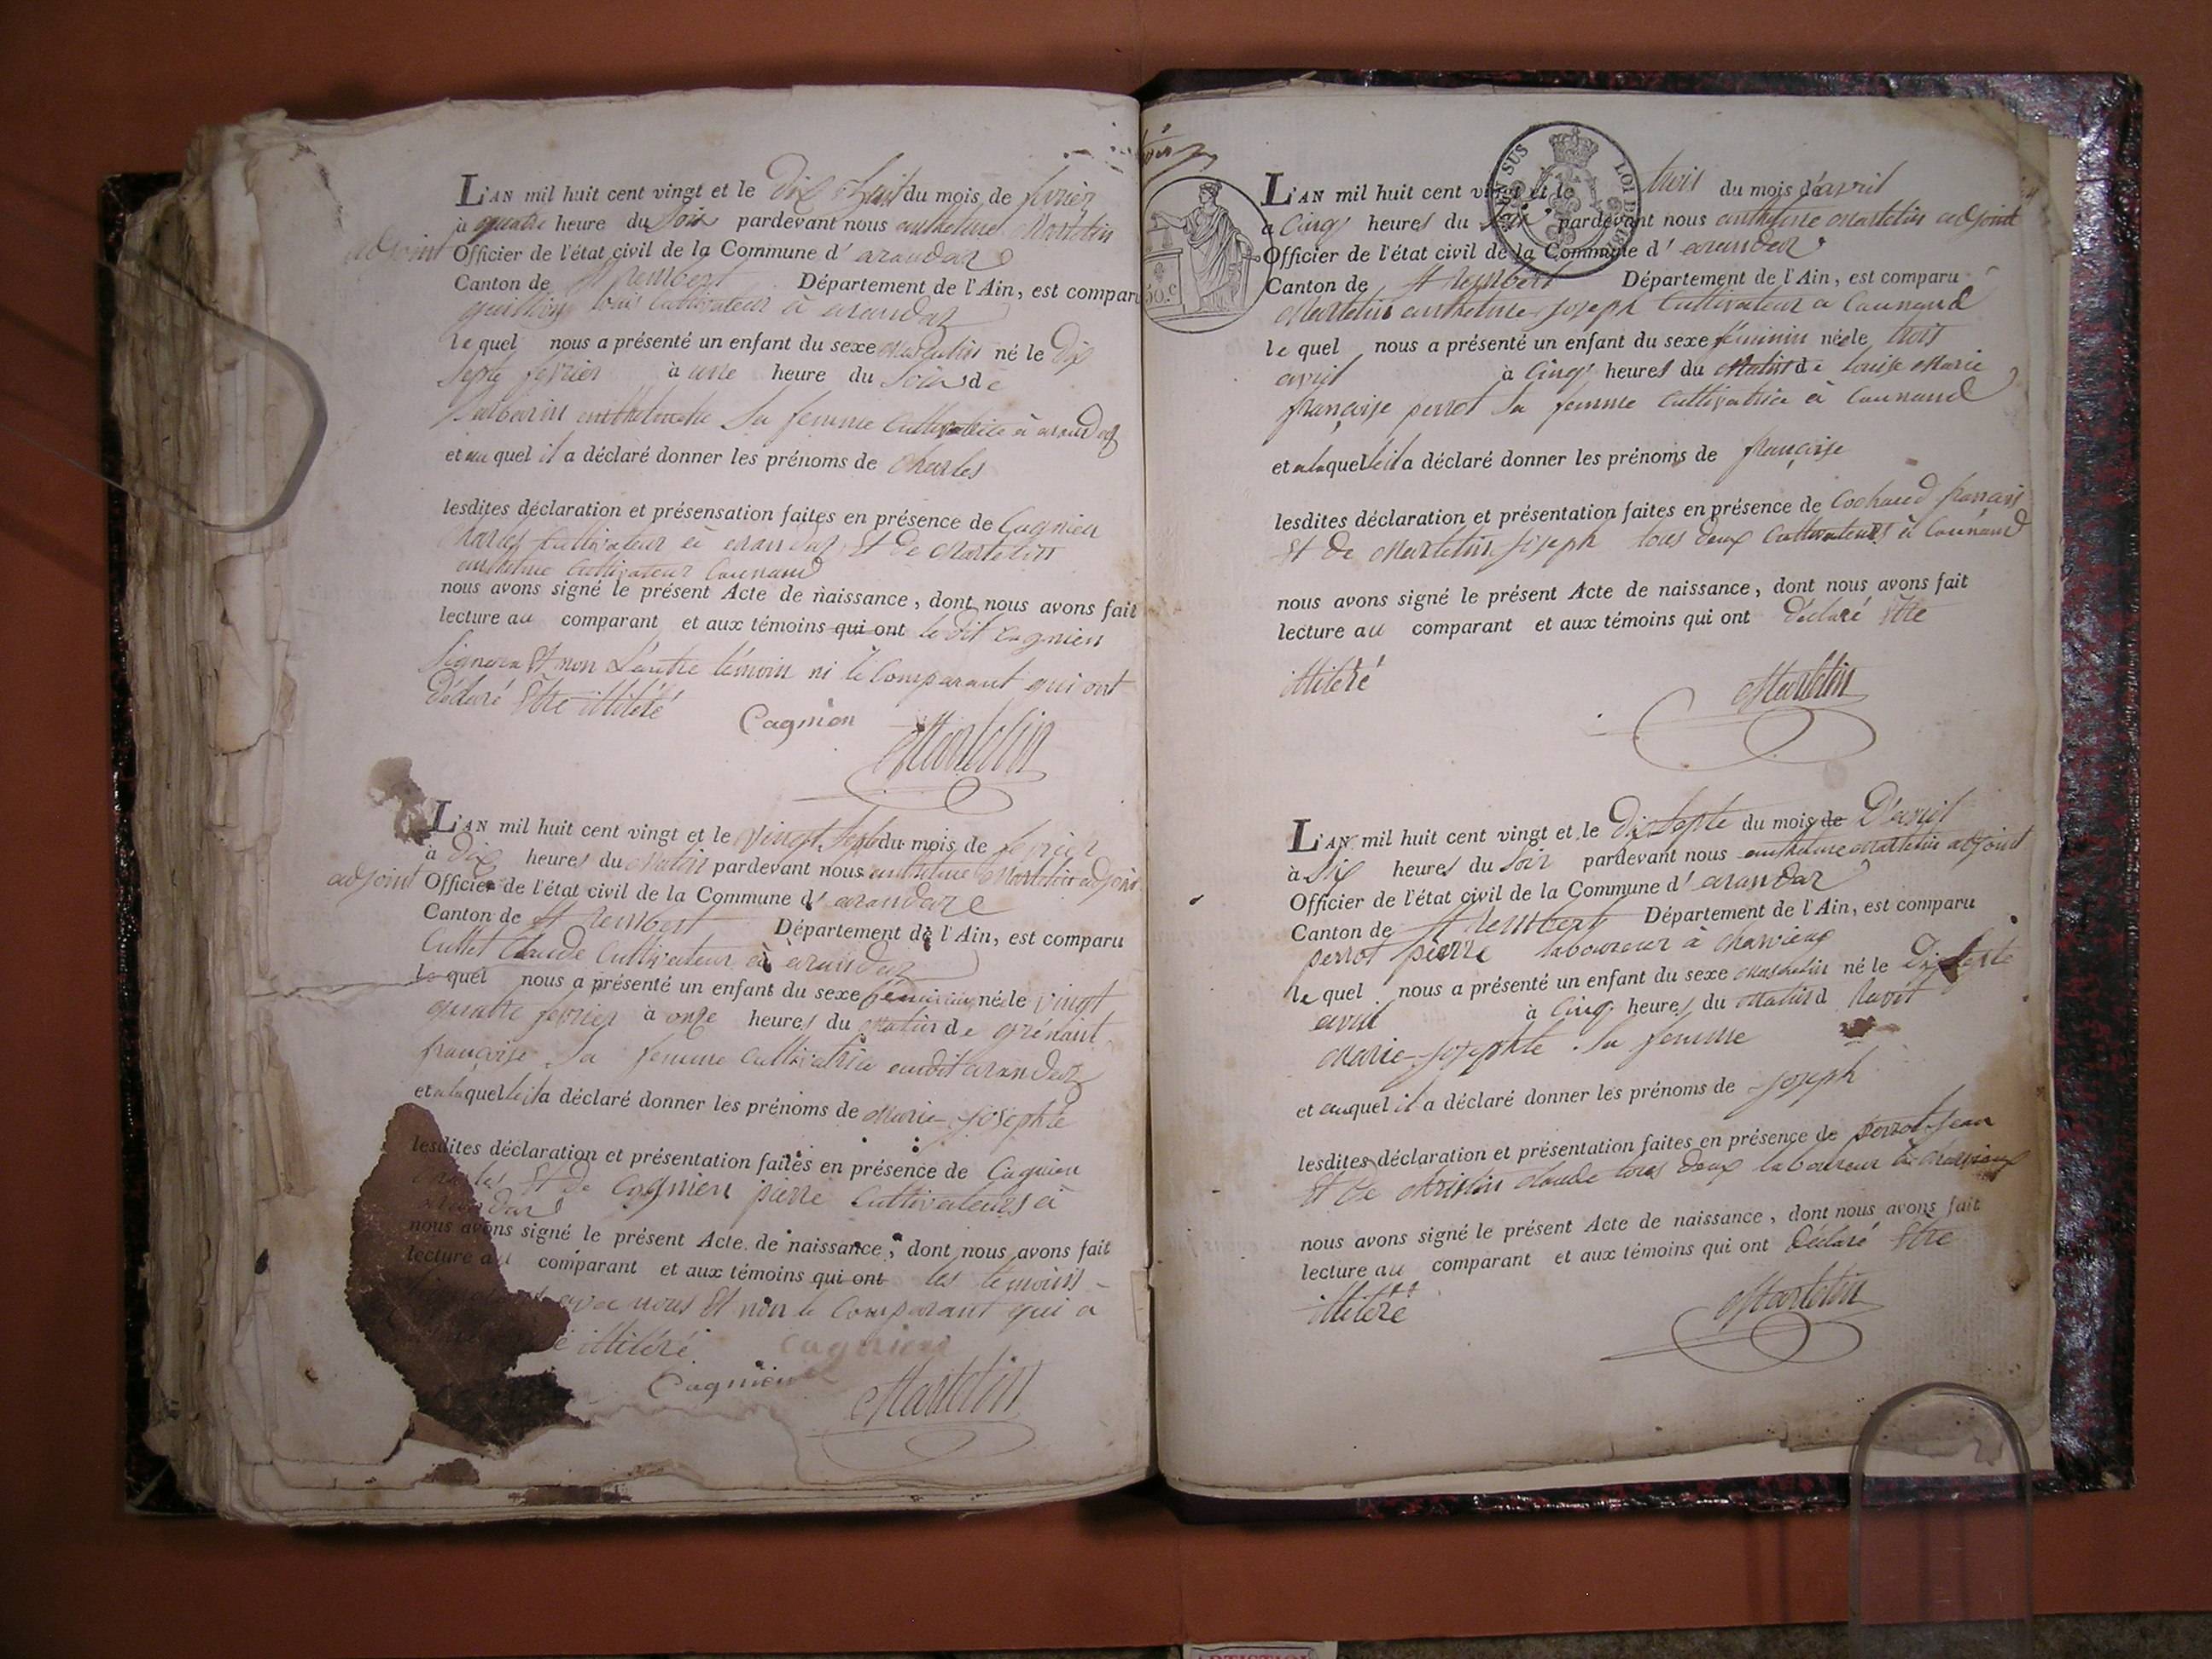 L'AN mil huit cent vingt et le dix huit du mois de fevrier
à quatre heure du Soir pardevant nous anthelme Martelin
adjoint Officier de l'état civil de la Commune d' arandaz
Canton de St rembert Département de l'Ain, est comparu
louis Cultivateur à arandaz
le quel nous a présenté un enfant du sexe Masculin né le dix
Sept fevrier à une heure du Soir de
Sa femme Cultivatrice à arandaz
et au quel il a déclaré donner les prénoms de Charles
lesdites déclaration et présensation faites en présence de Cagnien
Charles Cultivateur à arandaz Et de Martelin
anthelme Cultivateur Counand
nous avons signé le présent Acte de naissance, dont nous avons fait
lecture au comparant et aux témoins qui ont le dit Cagnien
Signera Et non L'autre témoin ni le Comparant qui ont
Déclaré Etre illitéré
Cagnien
Martelin
L'AN mil huit cent vingt et le Vingt Sept du mois de fevrier
à Dix heures du Matin pardevant nous anthelme Martelin adjoint
adjoint Officier de l'état civil de la Commune d' arandaz
Canton de St rembert Département de l'Ain, est comparu
Cullet Claude Cultivateur à arandaz
le quel nous a présenté un enfant du sexe féminin née le vingt
quatre fevrier à onze heures du Matin de grénaut
françoise Sa femme Cultivatrice audit arandaz
et a la quelle il a déclaré donner les prénoms de Marie Josephte
lesdites déclaration et présentation faites en présence de Cagnien
Charles Et de Cagnien pierre Cultivateurs à
arandaz
nous avons signé le présent Acte de naissance, dont nous avons fait
lecture au comparant et aux témoins qui ont les témoins
avec nous Et non le Comparant qui a
illitéré
Cagniend
Cagnien
Martelin
50.c
EN SUS
LOI DE 1816
L'AN mil huit cent vingt et le trois du mois d'avril
à Cinq heures du Soir pardevant nous anthelme Martelin adjoint
Officier de l'état civil de la Commune d' arandaz
Canton de St rembert Département de l'Ain, est comparu
Martelin anthelme Joseph Cultivateur a Counand
le quel nous a présenté un enfant du sexe féminin née le trois
avril à Cinq heures du Matin de Louise Marie
françoise perrot Sa femme Cultivatrice à Counand
et a la quelle il a déclaré donner les prénoms de françoise
lesdites déclaration et présentation faites en présence de Cochard françois
Et de Martelin Joseph tous deux Cultivateurs à Counand
nous avons signé le présent Acte de naissance, dont nous avons fait
lecture au comparant et aux témoins qui ont Déclaré Etre
illitéré
Martelin
L'AN mil huit cent vingt et le Dix Septe du mois de D'avril
à Six heures du Soir pardevant nous anthelme Martelin adjoint
Officier de l'état civil de la Commune d' arandaz
Canton de St rembert Département de l'Ain, est comparu
perrot pierre laboureur à Charvieux
le quel nous a présenté un enfant du sexe Masculin né le Dix Septe
avril à Cinq heures du Matin d ravot
Marie Josephte Sa femme
et au quel il a déclaré donner les prénoms de Joseph
lesdites déclaration et présentation faites en présence de perrot Jean
Et de Claude tous Deux laboureur à Charvieux
nous avons signé le présent Acte de naissance, dont nous avons fait
lecture au comparant et aux témoins qui ont Déclaré Etre
illitéré
Martelin